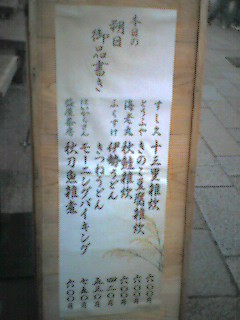 本日の
朔日
御品書き
すし久 十三里雑炊 六〇〇円
とうふや きのこ豆腐雑炊 六〇〇円
海老丸 秋鮭雑炊 六〇〇円
ふくすけ 伊勢うどん 四二〇円
きつねうどん 五五〇円
モーニングバイキング 七五〇円
五十鈴茶房 秋刀魚雑煮 六〇〇円